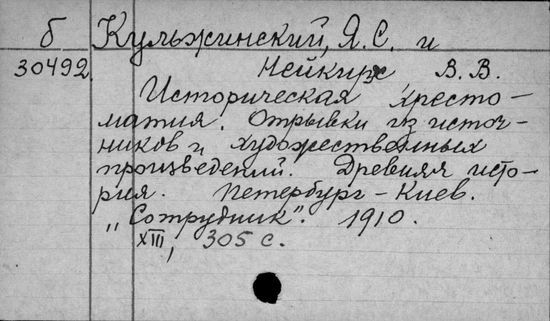 б Кульжинский, Я.С. и
30492 Нейкирх В.В.
Историческая хресто-
матия. Отрывки из источ-
ников и художественных
произведений. Древняя исто-
рия. Петербург-Киев.
„Сотрудник". 1910.
XIII, 305 с.